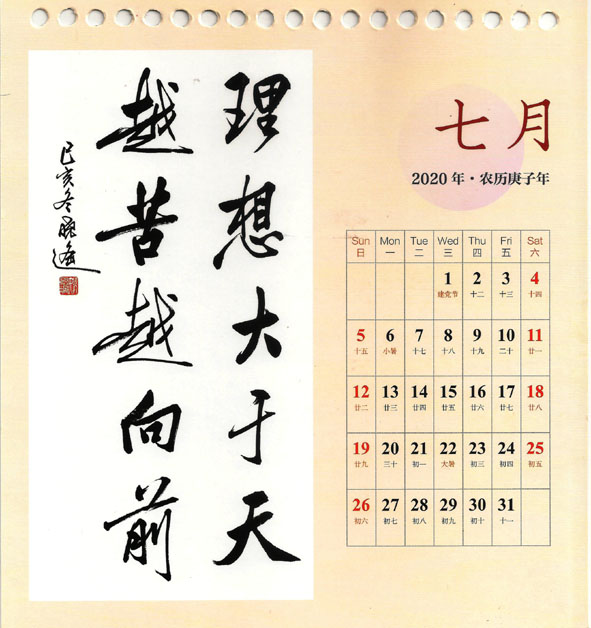 理想大于天
越苦越向前
己亥冬
七月
2020 年·农历庚子年
Sun Mon Tue Wed Thu Fri Sat
日 一 二 三 四 五 六
1 2 3 4
建党节 十二 十三 十四
5 6 7 8 9 10 11
十五 小暑 十七 十八 十九 二十 廿一
12 13 14 15 16 17 18
廿二 廿三 廿四 廿五 廿六 廿七 廿八
19 20 21 22 23 24 25
廿九 三十 初一 大暑 初三 初四 初五
26 27 28 29 30 31
初六 初七 初八 初九 初十 十一